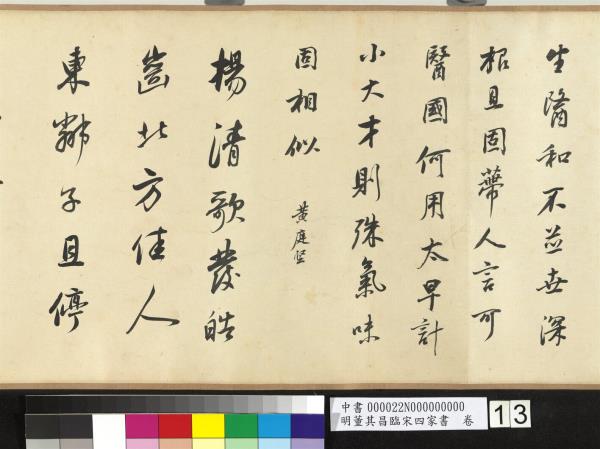 生醫和不並世深
根且固蔕人言可
醫國何用太早計
小大才則殊氣味
固相似
黃庭堅
楊清歌發皓
齒北方佳人
東鄰子且停
中書 000022N000000000
明董其昌臨宋四家書 卷
13